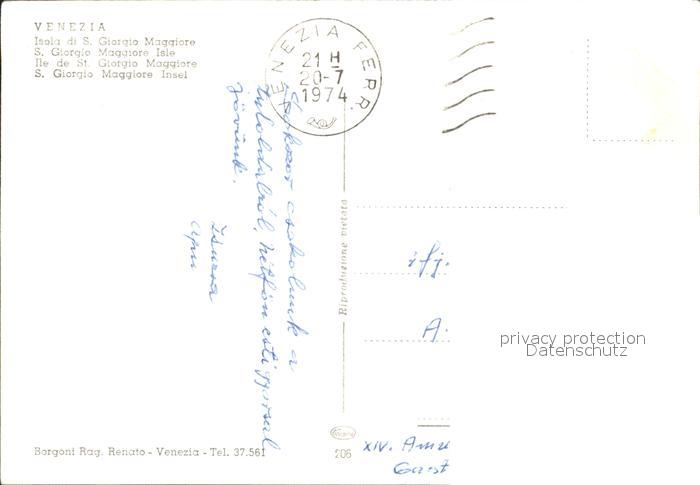 VENEZIA
Isola di S. Giorgio Maggiore
S. Giorgio Maggiore Isle
Ile de St. Giorgio Maggiore
S. Giorgio Maggiore Insel
VENEZIA FERR.
21 H
20-7
1974
csokolunk a
túloldalról, hétfőn esti gyorssal
jövünk.
Zsuzsa
Apu
Riproduzione vietata
ifj.
A.
privacy protection
Datenschutz
XIV.
Borgoni Rag. Renato - Venezia - Tel. 37.561
206